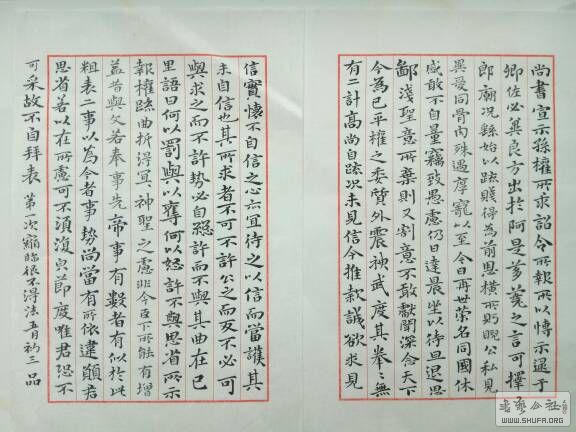 尚書宣示孫權所求詔令所報所以博示逮于
卿佐必冀良方出於阿是芻蕘之言可擇
郎廟况繇始以疏賤得為前恩横所盼睨公私見
異愛同骨肉殊遇厚寵以至今日再世榮名同國休
慼敢不自量竊致愚慮仍日達晨坐以待旦退思
鄙淺聖意所棄則又割意不敢獻聞深念天下
今為已平權之委質外震神武度其拳々無
有二計高尚自疏况未見信今推款誠欲求見
信實懷不自信之心亦宜待之以信而當護其
未自信也其所求者不可不許々之而反不必可
與求之而不許勢必自絕許而不與其曲在己
里語曰何以罰與以奪何以怒許不與思省所示
報權疏曲折得宜神聖之慮非今臣下所能有增
益昔與文若奉事先帝事有數者有似於此
粗表二事以為今者事勢尚當有所依違願君
思省若以在所慮可不須復皃節度唯君恐不
可采故不自拜表 第一次臨帖很不得法五月初三 品
WWW.SHUFA.ORG